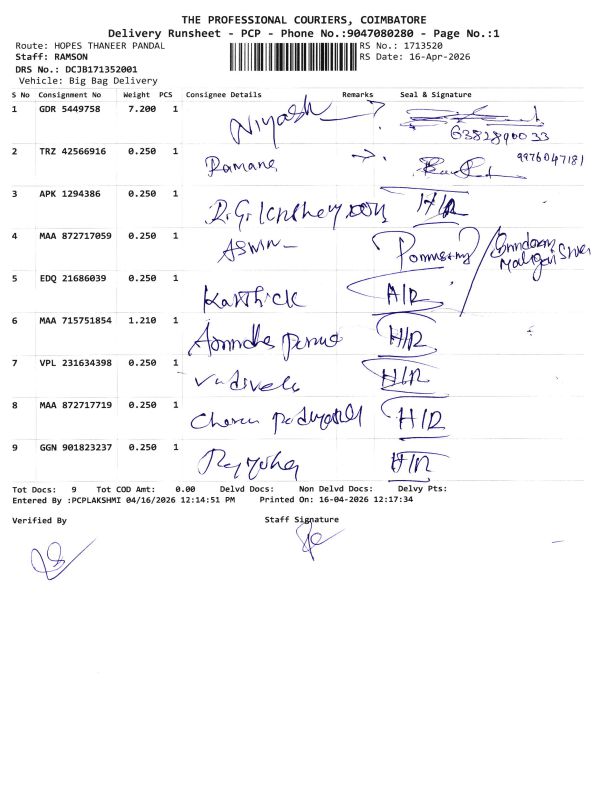 THE PROFESSIONAL COURIERS, COIMBATORE
Delivery Runsheet - PCP - Phone No.:9047080280 - Page No.:1
Route: HOPES THANEER PANDAL RS No.: 1713520
Staff: RAMSON RS Date: 16-Apr-2026
DRS No.: DCJB171352001
Vehicle: Big Bag Delivery
S No Consignment No Weight PCS Consignee Details Remarks Seal & Signature
1 GDR 5449758 7.200 1 Niyash
6382890033
2 TRZ 42566916 0.250 1 Ramane 9976047181
3 APK 1294386 0.250 1 H/R
4 MAA 872717059 0.250 1 Aswin
5 EDQ 21686039 0.250 1 Karthick A/R
6 MAA 715751854 1.210 1 H/R
7 VPL 231634398 0.250 1 H/R
8 MAA 872717719 0.250 1 Charan H/R
9 GGN 901823237 0.250 1 H/R
Tot Docs: 9 Tot COD Amt: 0.00 Delvd Docs: Non Delvd Docs: Delvy Pts:
Entered By :PCPLAKSHMI 04/16/2026 12:14:51 PM Printed On: 16-04-2026 12:17:34
Verified By Staff Signature